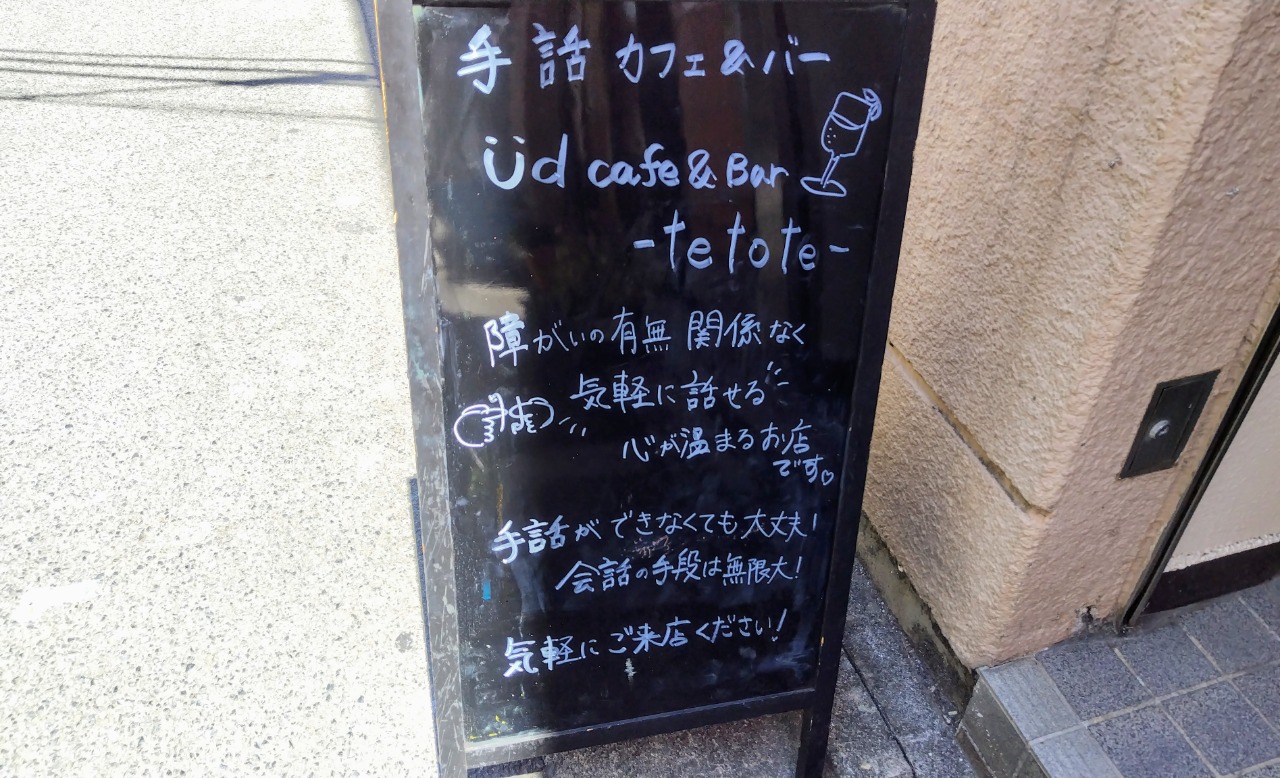 手話カフェ&バー
Üd cafe&Bar
-tetote-
障がいの有無関係なく
気軽に話せる
心が温まるお店
です♡
手話ができなくても大丈夫!
会話の手段は無限大!
気軽にご来店ください!